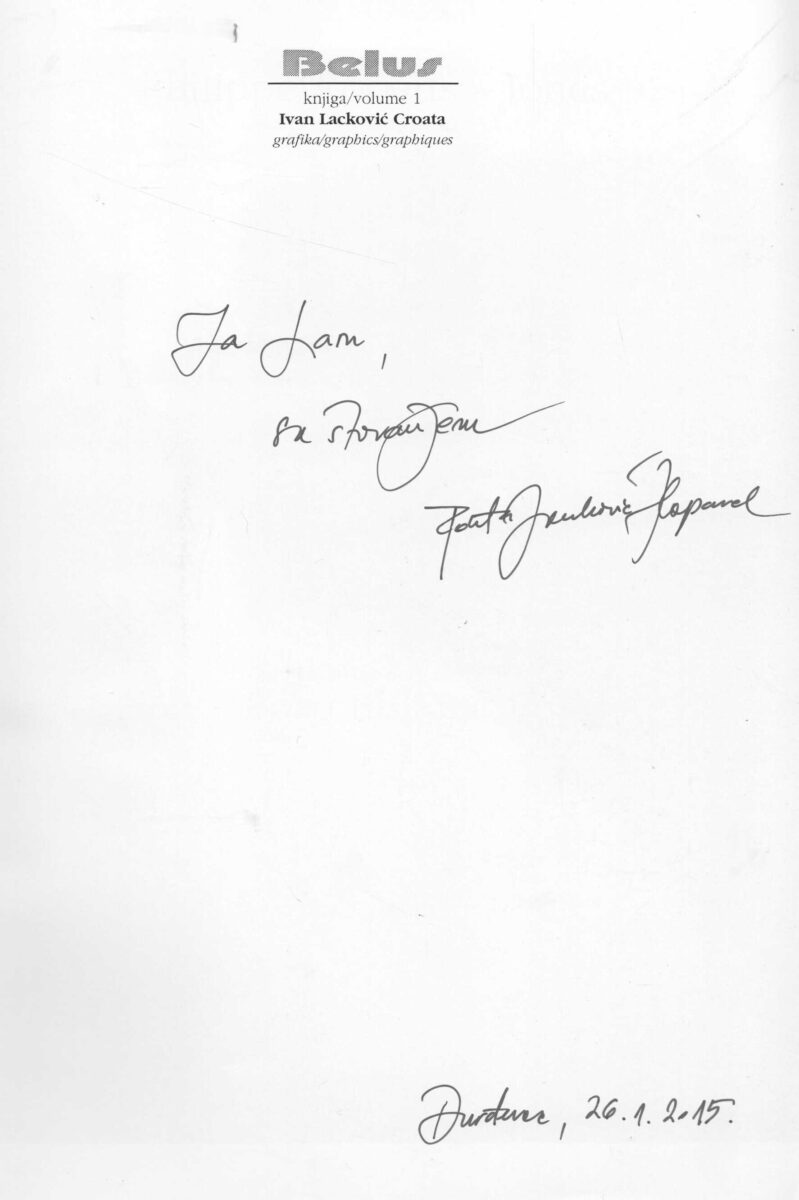 Belus
knjiga/volume 1
Ivan Lacković Croata
grafika/graphics/graphiques
Za
sa štovanjem
Janković Hapavel
Đurđevac, 26.1.2015.